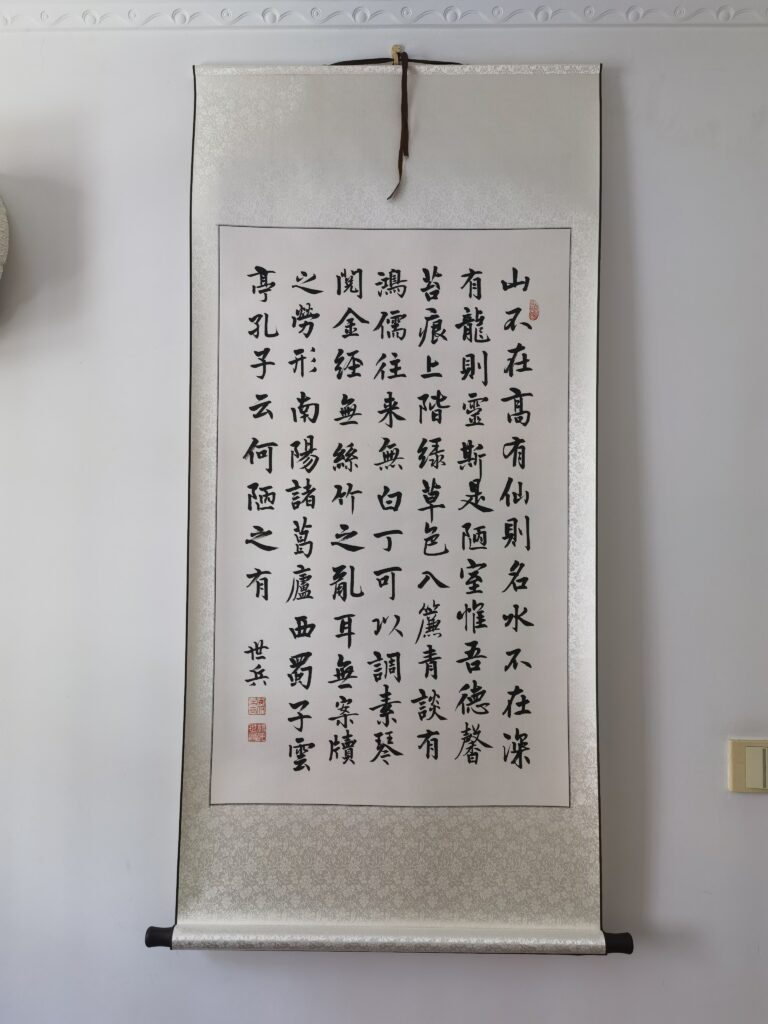 山不在高有仙則名水不在深
有龍則靈斯是陋室惟吾德馨
苔痕上階緑草色入簾青談有
鴻儒往来無白丁可以調素琴
閲金經無絲竹之亂耳無案牘
之勞形南陽諸葛廬西蜀子雲
亭孔子云何陋之有
世兵